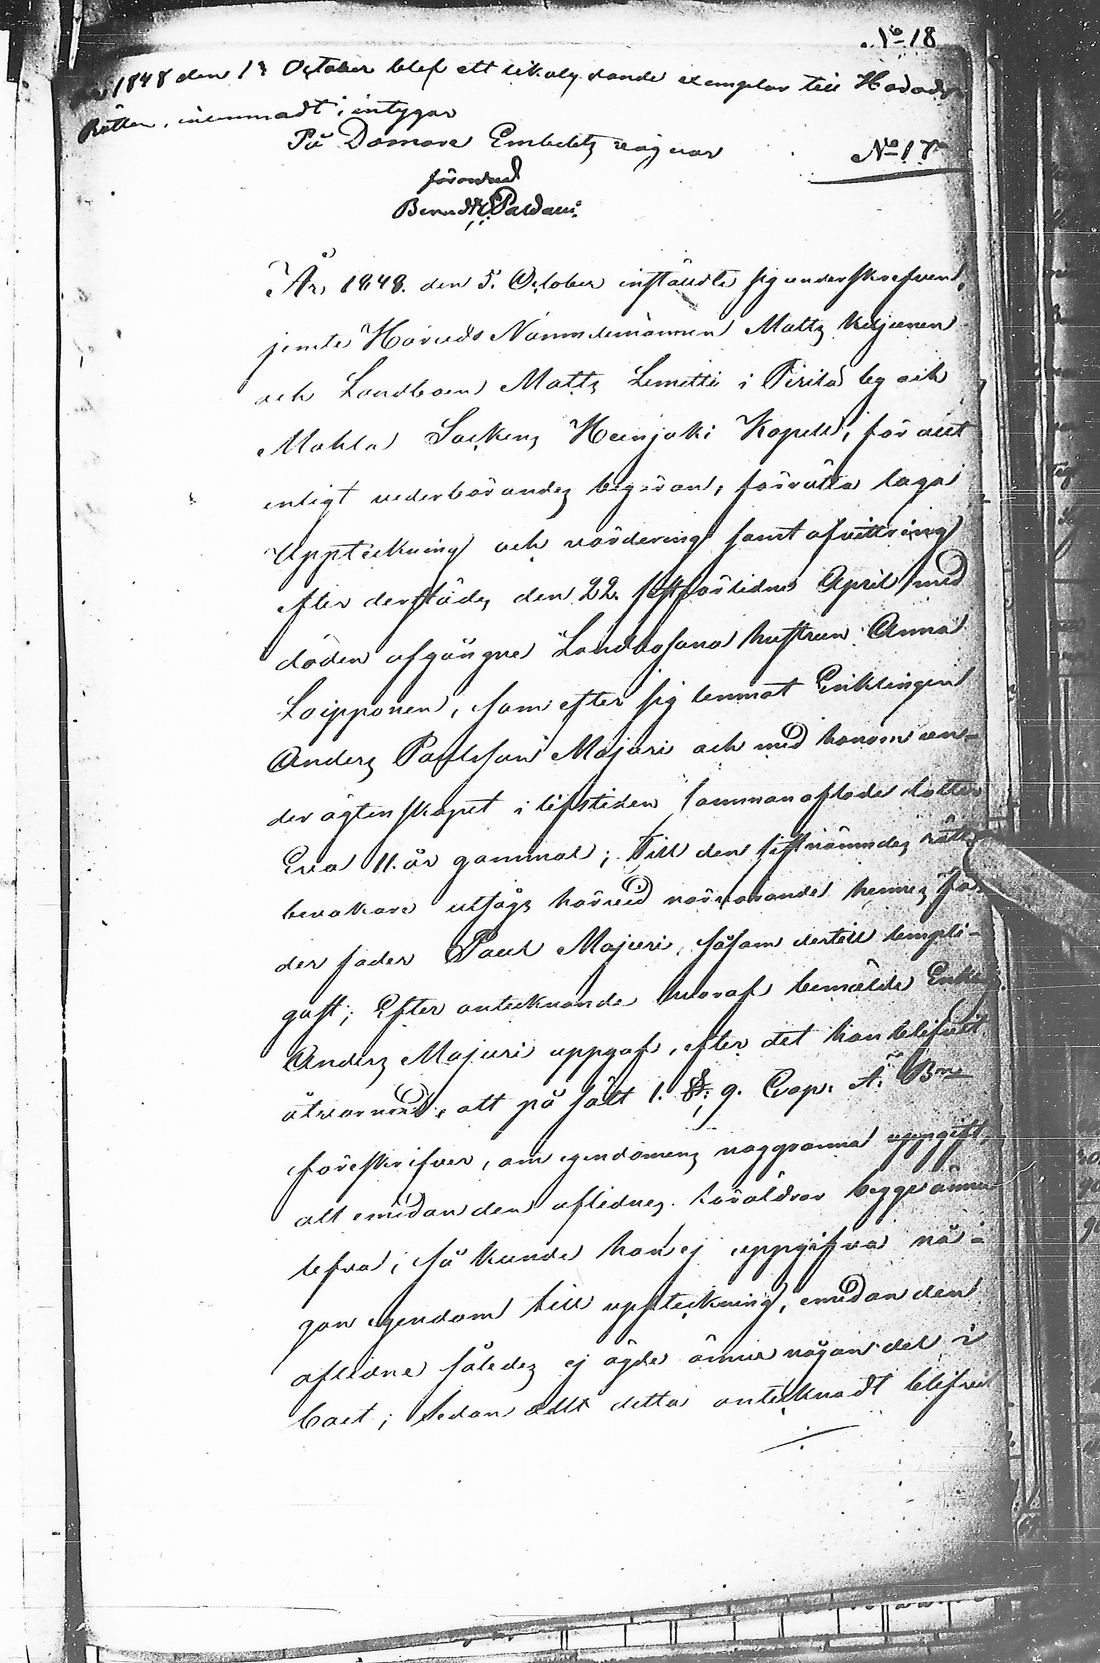 No 18
1848 den 13 October blef ett lika lydande exemplar till Härads
Rätten inlemnadt; intygar
På Domare Embetets vägnar
No 17
förordnad
Berndt Paldani
År 1848. den 5. October instäldte sig underskrefven,
jemte Härads Nämndemannen Matts Kiljunen
och Landboen Matts Lemetti i Pirilä by och
Mohla Sockens Heinjoki Kapell, för att
enligt vederbörandes begäran, förrätta laga
Uppteckning och värdering samt afvittring
efter derstädes den 22. sistförlidne April med
döden afgångne Landbosona hustrun Anna
Loipponen, som efter sig lemnat Enklingen
Anders Paulsson Majuri och med honom un-
der ägtenskapet i lifstiden sammanaflade dotter
Eva 11. år gammal; Till den sistnämndes rätts
bevakare utsågs härvid närvarande hennes far-
der fader Paul Majuri, såsom dertill lämpli-
gast; Efter antecknande hvaraf bemälde Enkling
Anders Majuri uppgaf, efter det han blifvit
åtvarnad, att på sätt 1. §; 9. Cap: Ä: Bn
föreskrifver, om egendomens noggranna uppgift,
att emedan den aflidnes föräldrar begge ännu
lefva, så kunde han ej uppgifva nå-
gon egendom till uppteckning, emedan den
aflidne således ej ägde ännu någon del i
boet; Sedan allt detta antecknadt blifvit